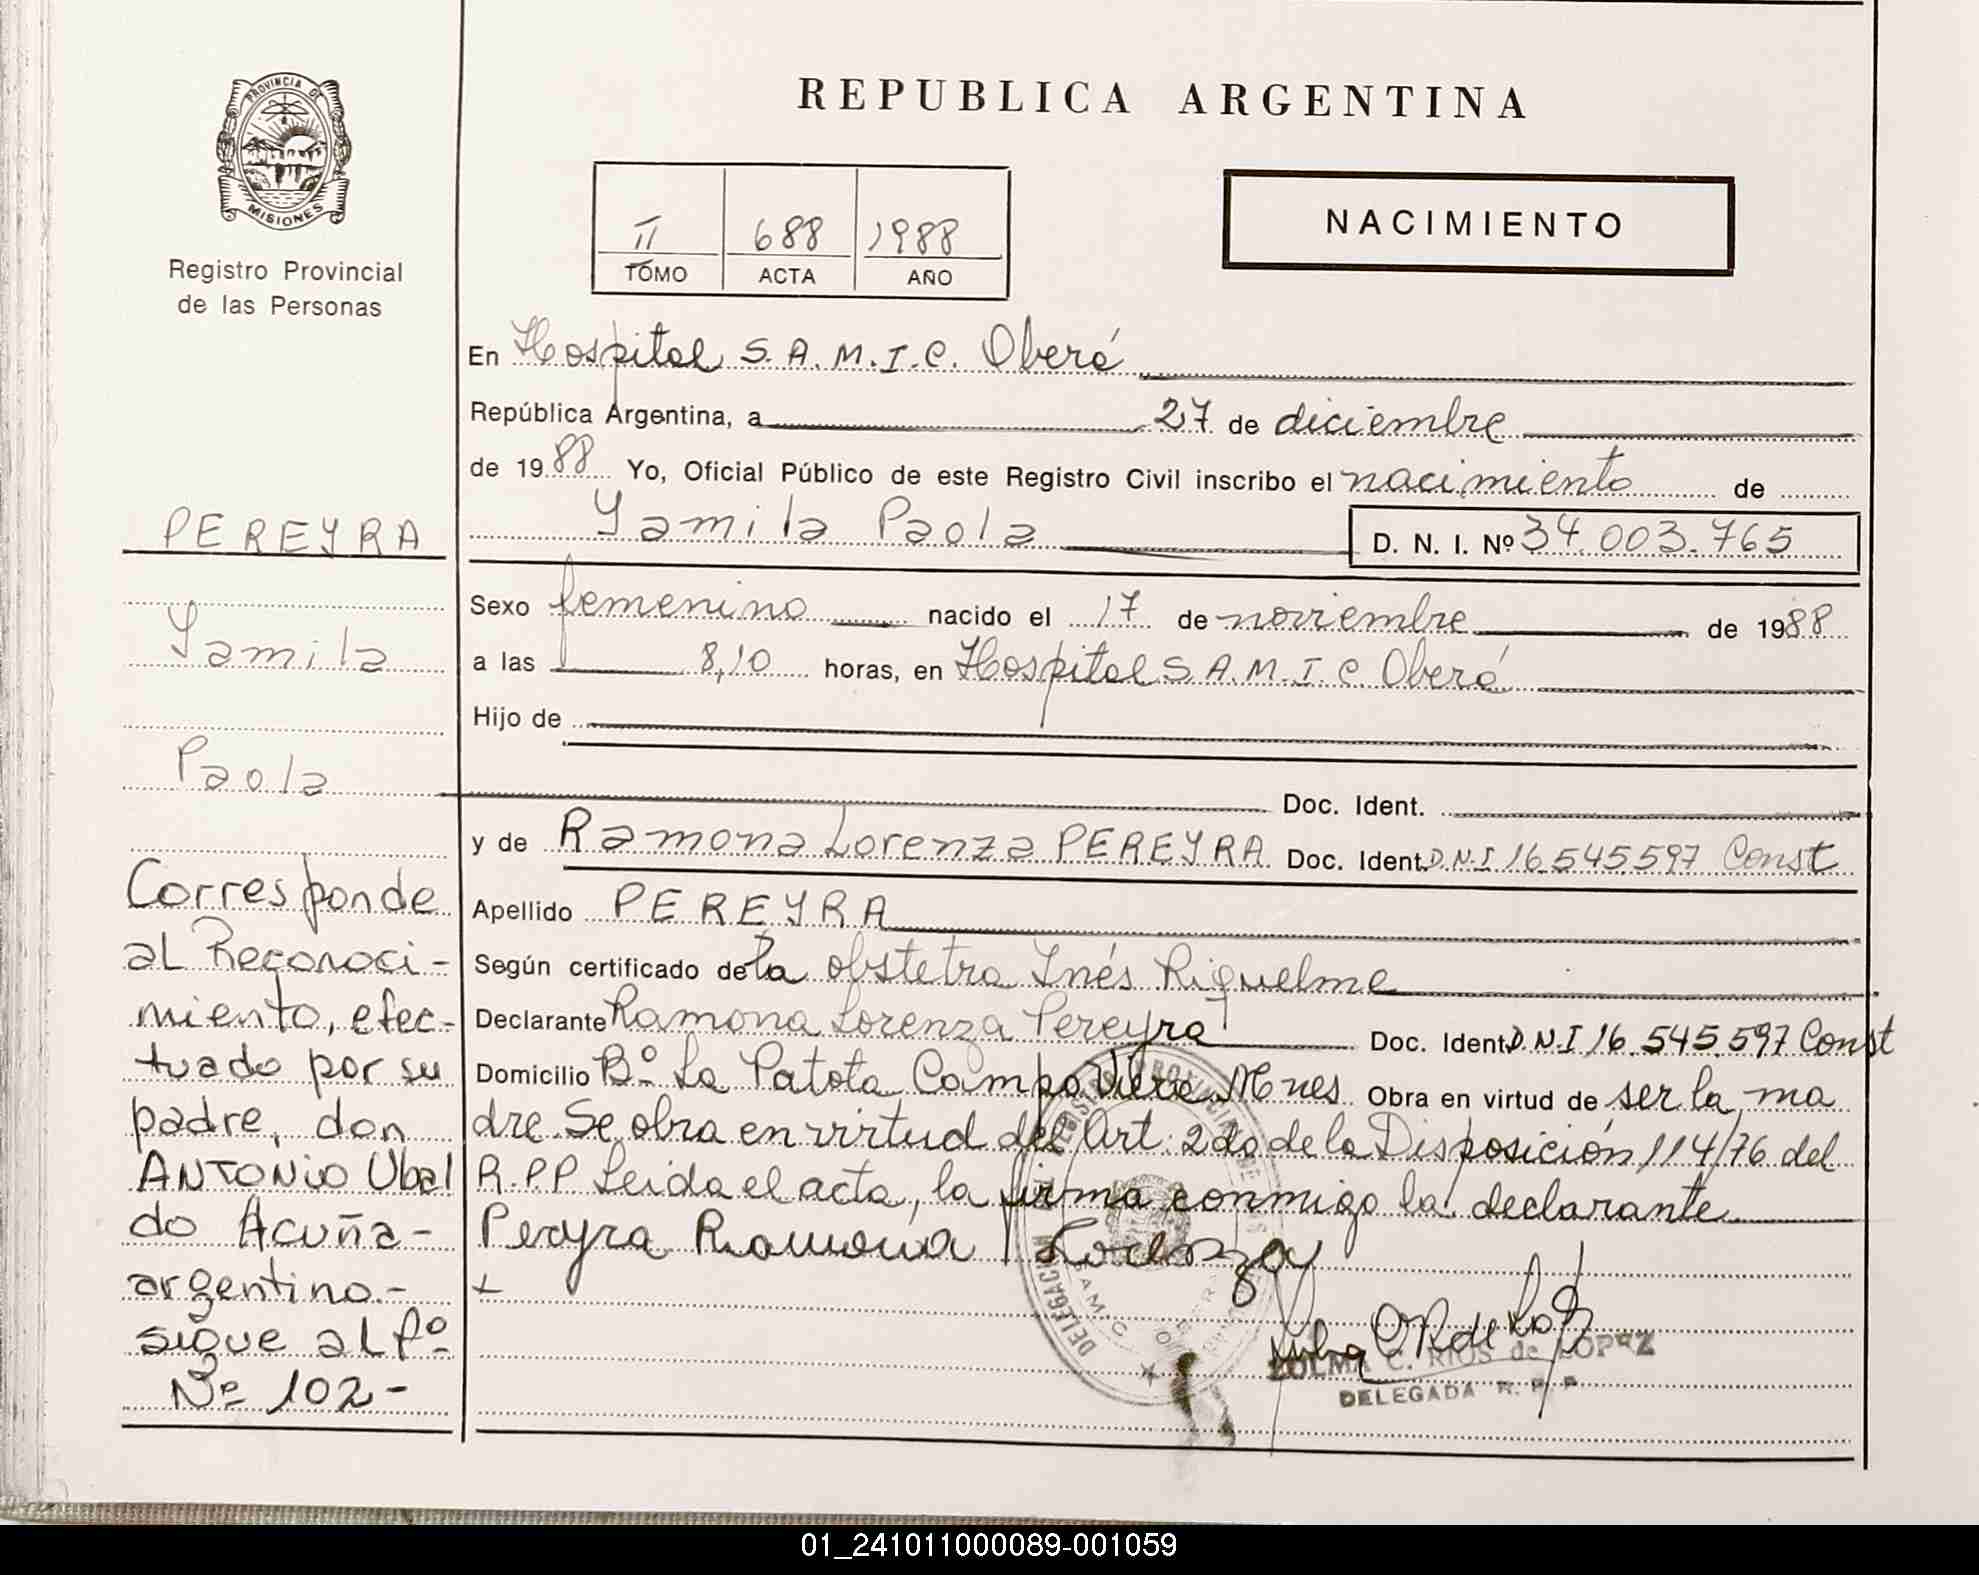 REPUBLICA ARGENTINA
PROVINCIA DE
MISIONES
Registro Provincial
de las Personas
II 688 1988
TOMO ACTA AÑO
NACIMIENTO
En Hospital S.A.M.I.C. Oberá
República Argentina, a 27 de diciembre
de 1988 Yo, Oficial Público de este Registro Civil inscribo el nacimiento de
Yamila Paola D. N. I. Nº 34.003.765
Sexo femenino nacido el 17 de noviembre de 1988
a las 8,10 horas, en Hospital S.A.M.I.C. Oberá
Hijo de
Doc. Ident.
y de Ramona Lorenza PEREYRA Doc. Ident. D.N.I 16.545.597 Const
Apellido PEREYRA
Según certificado de la obstetra Inés Riquelme
Declarante Ramona Lorenza Pereyra Doc. Ident. D.N.I 16.545.597 Const
Domicilio Bº La Patota Campo Viera Mnes Obra en virtud de ser la ma
dre. Se obra en virtud del Art. 2do de la Disposición 114/76 del
R.P.P Leida el acta, la firma conmigo la declarante
Pereyra Ramona Lorenza
ZULMA C. RIOS de LOPEZ
DELEGADA R. P. P.
PEREYRA
Yamila
Paola
Corresponde
al Reconoci-
miento, efec-
tuado por su
padre, don
ANTONIO Ubal
do Acuña-
argentino.-
sigue al Fº
Nº 102-
01_241011000089-001059